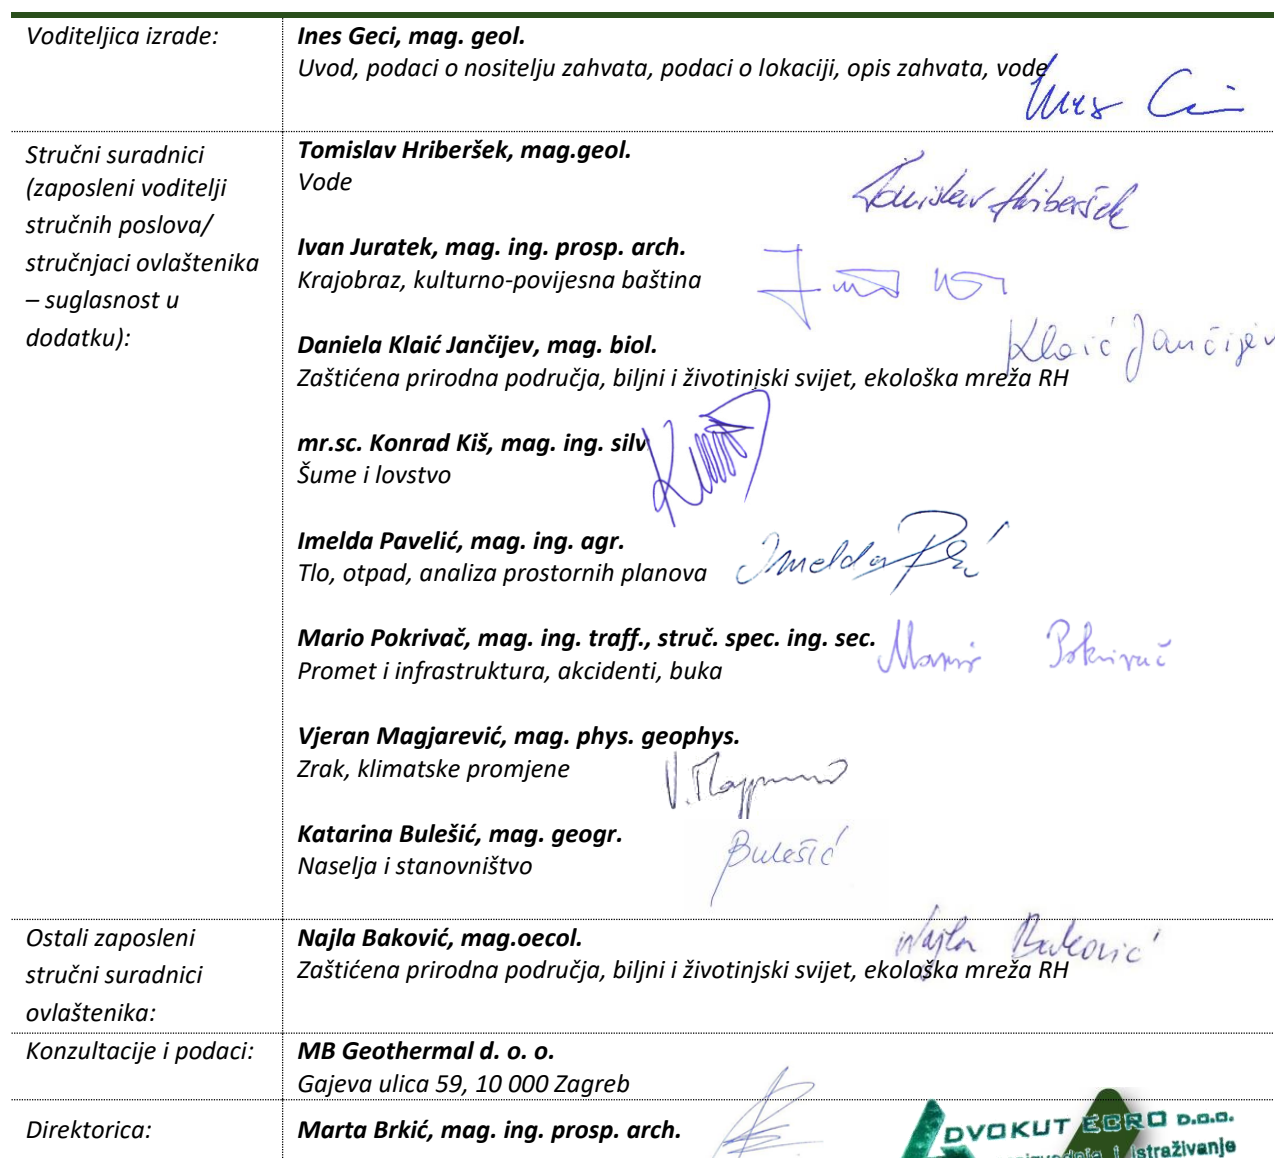 Voditeljica izrade:
Ines Geci, mag. geol.
Uvod, podaci o nositelju zahvata, podaci o lokaciji, opis zahvata, vode
Stručni suradnici
(zaposleni voditelji
stručnih poslova/
stručnjaci ovlaštenika
– suglasnost u
dodatku):
Tomislav Hriberšek, mag.geol.
Vode
Tomislav Hriberšek
Ivan Juratek, mag. ing. prosp. arch.
Krajobraz, kulturno-povijesna baština
Daniela Klaić Jančijev, mag. biol.
Klaić Jančijev
Zaštićena prirodna područja, biljni i životinjski svijet, ekološka mreža RH
mr.sc. Konrad Kiš, mag. ing. silv
Šume i lovstvo
Imelda Pavelić, mag. ing. agr.
Tlo, otpad, analiza prostornih planova
Imelda
Mario Pokrivač, mag. ing. traff., struč. spec. ing. sec.
Mario Pokrivač
Promet i infrastruktura, akcidenti, buka
Vjeran Magjarević, mag. phys. geophys.
Zrak, klimatske promjene
Katarina Bulešić, mag. geogr.
Naselja i stanovništvo
Bulešić
Ostali zaposleni
stručni suradnici
ovlaštenika:
Najla Baković, mag.oecol.
Najla Baković
Zaštićena prirodna područja, biljni i životinjski svijet, ekološka mreža RH
Konzultacije i podaci:
MB Geothermal d. o. o.
Gajeva ulica 59, 10 000 Zagreb
Direktorica:
Marta Brkić, mag. ing. prosp. arch.
DVOKUT ECRO D.O.O.
i istraživanje